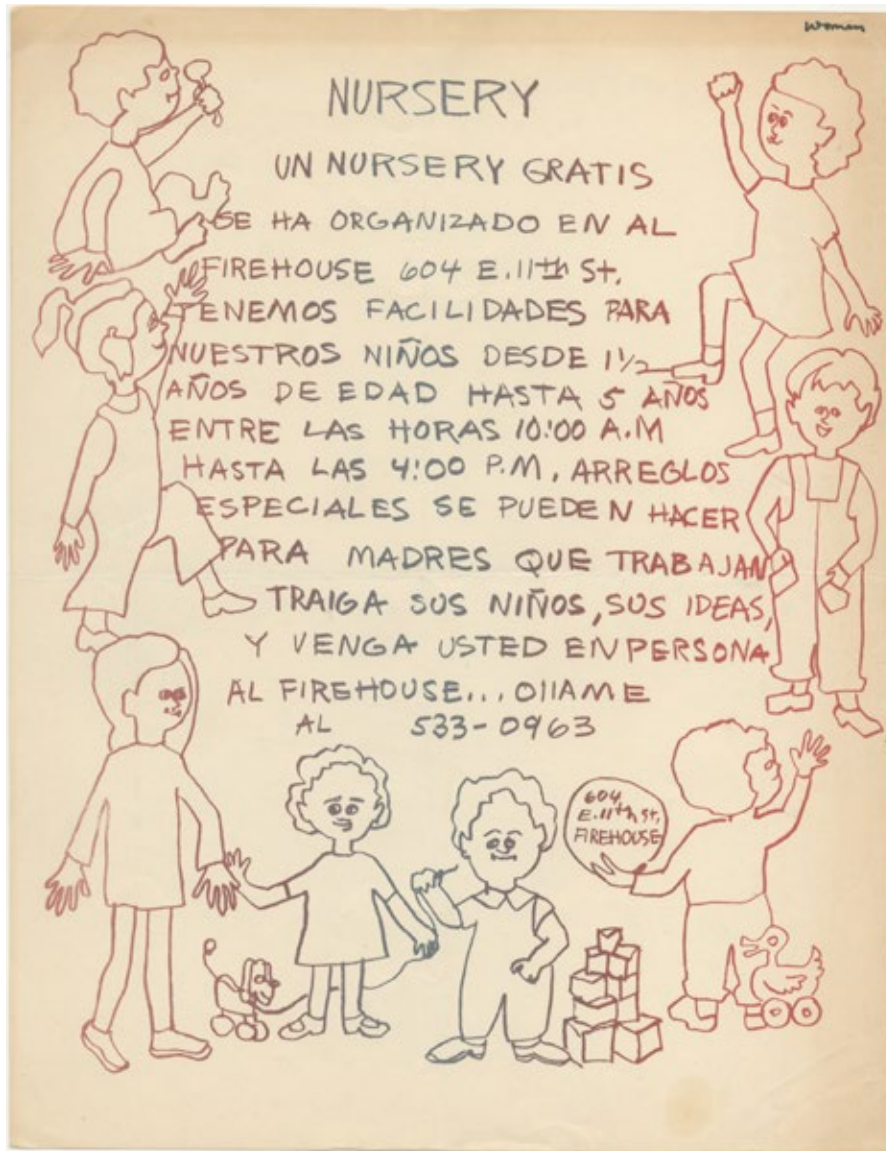 Women
NURSERY
UN NURSERY GRATIS
SE HA ORGANIZADO EN AL
FIREHOUSE 604 E.11th St.
TENEMOS FACILIDADES PARA
NUESTROS NIÑOS DESDE 1½
AÑOS DE EDAD HASTA 5 AÑOS
ENTRE LAS HORAS 10:00 A.M
HASTA LAS 4:00 P.M, ARREGLOS
ESPECIALES SE PUEDEN HACER
PARA MADRES QUE TRABAJAN
TRAIGA SUS NIÑOS, SUS IDEAS,
Y VENGA USTED EN PERSONA
AL FIREHOUSE... O llAME
AL 533-0963
604
E.11th St,
FIREHOUSE